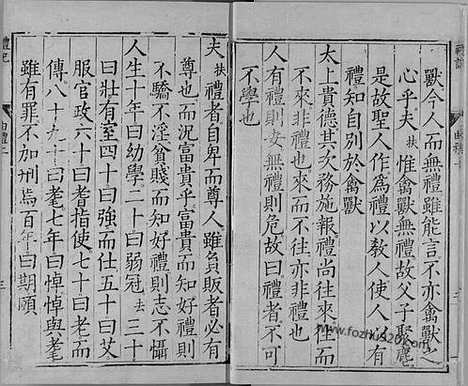 獸今人而無禮雖能言不亦禽獸之
心乎夫扶惟禽獸無禮故父子聚麀
是故聖人作爲禮以教人使人以有
禮知自別於禽獸
太上貴德其次務施報禮尚往來往而
不來非禮也來而不往亦非禮也
人有禮則安無禮則危故曰禮者
不可不學也
夫扶禮者自卑而尊人雖負販者必有
尊也而況富貴乎富貴而知好禮則
不驕不淫貧賤而知好禮則志不懾
人生十年曰幼學二十曰弱冠去三十
曰壯有室四十曰強而仕五十曰艾
服官政六十曰耆指使七十曰老而
傳八十九十曰耄七年曰悼悼與耄
雖有罪不加刑焉百年曰期頤
禮記
曲禮上
三
www.fozhu920.com